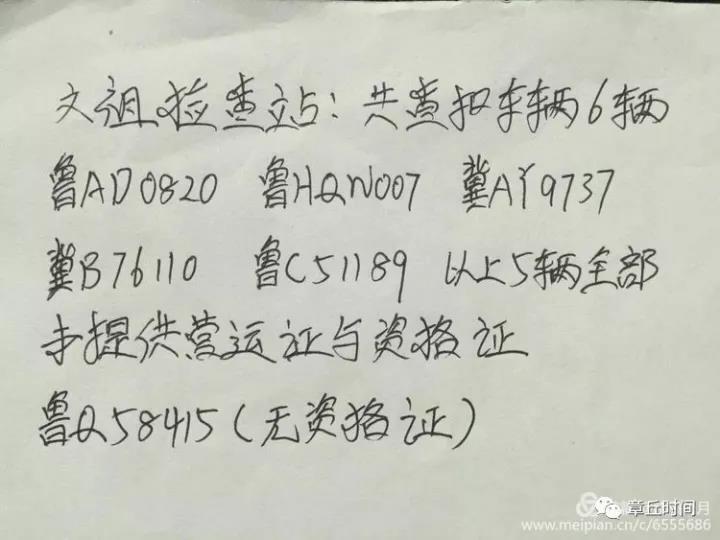 文祖检查站：共查扣车辆6辆
鲁AD0820 鲁HQW007 冀AY9737
冀B76110 鲁C51189 以上5辆全部
未提供营运证与资格证
鲁Q58415（无资格证）
月
章丘时间
www.meipian.cn/c/6555686